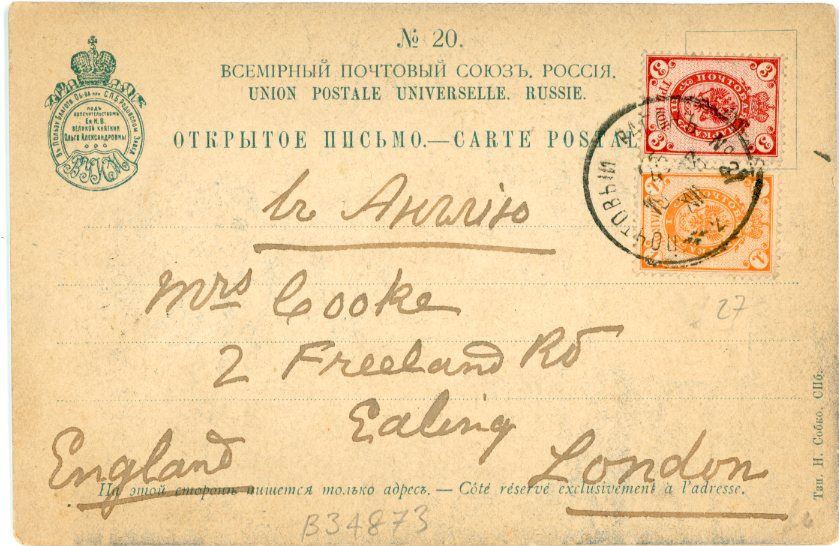 № 20.
ВСЕМІРНЫЙ ПОЧТОВЫЙ СОЮЗЪ. РОССІЯ.
UNION POSTALE UNIVERSELLE. RUSSIE.
ОТКРЫТОЕ ПИСЬМО.—CARTE POSTA
ПОДЪ
ПОКРОВИТЕЛЬСТВОМЪ
ЕЯ И. В.
ВЕЛИКОЙ КНЯГИНИ
Ольги Александровны
3
3
3
3
ПОЧТОВАЯ
МАРКА
1
1
ПОЧТОВЫЙ
въ Англію
Mrs Cooke
2 Freeland Rd
Ealing
England London
27
На этой сторонѣ пишется только адресъ. — Côté réservé exclusivement à l'adresse.
B34873
Тзи. Н. Собко, СПб.